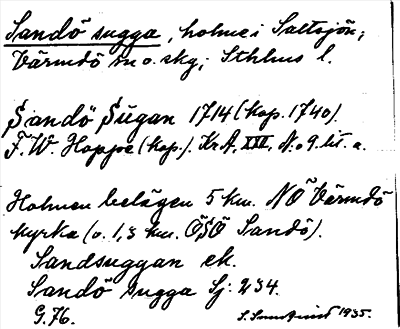 Sandö sugga, holme i Saltsjön;
Värmdö sn o. skg; Sthlms l.
Sandö Sugan 1714 (kop. 1740).
F. W. Hoppe (kop.). Kr A, XIII, N:o 9 lit. a.
Holmen belägen 5 km. NÖ Värmdö
kyrka (o. 1,3 km. ÖSÖ Sandö).
Sandsuggan ek.
Sandö sugga Sj: 234.
G. 76. 1935.